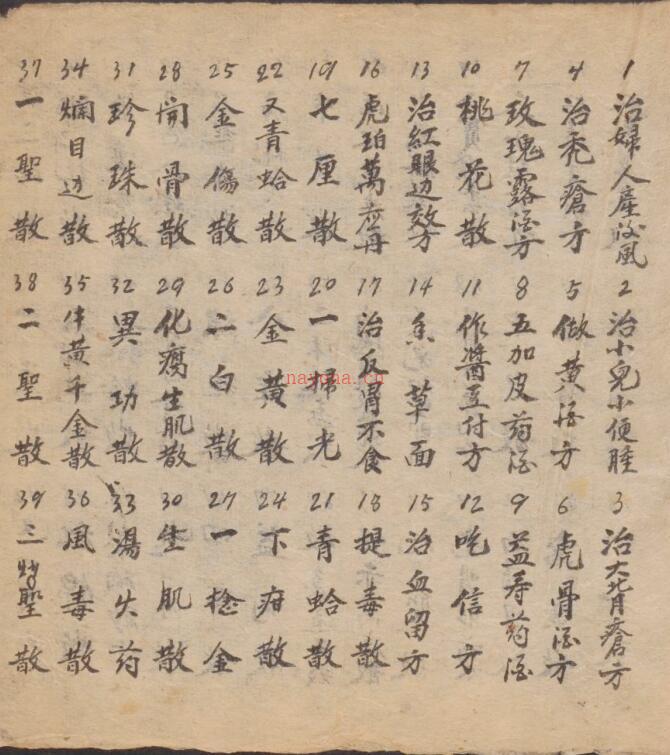 1 治婦人產後風
2 治小兒小便腫
3 治大背瘡方
4 治禿瘡方
5 做黃酒方
6 虎骨酒方
7 玫瑰露酒方
8 五加皮药酒
9 益寿药酒
10 桃花散
11 作醬豆付方
12 吃信方
13 治紅眼边效方
14 香草面
15 治血留方
16 虎珀萬应丹
17 治反胃不食
18 提毒散
19 七厘散
20 一掃光
21 青蛤散
22 又青蛤散
23 金黃散
24 下疳散
25 金傷散
26 二白散
27 一捻金
28 開骨散
29 化腐生肌散
30 生肌散
31 珍珠散
32 異功散
33 湯火药
34 爛目边散
35 牛黃千金散
36 風毒散
37 一聖散
38 二聖散
39 三妙聖散
naycha.cn